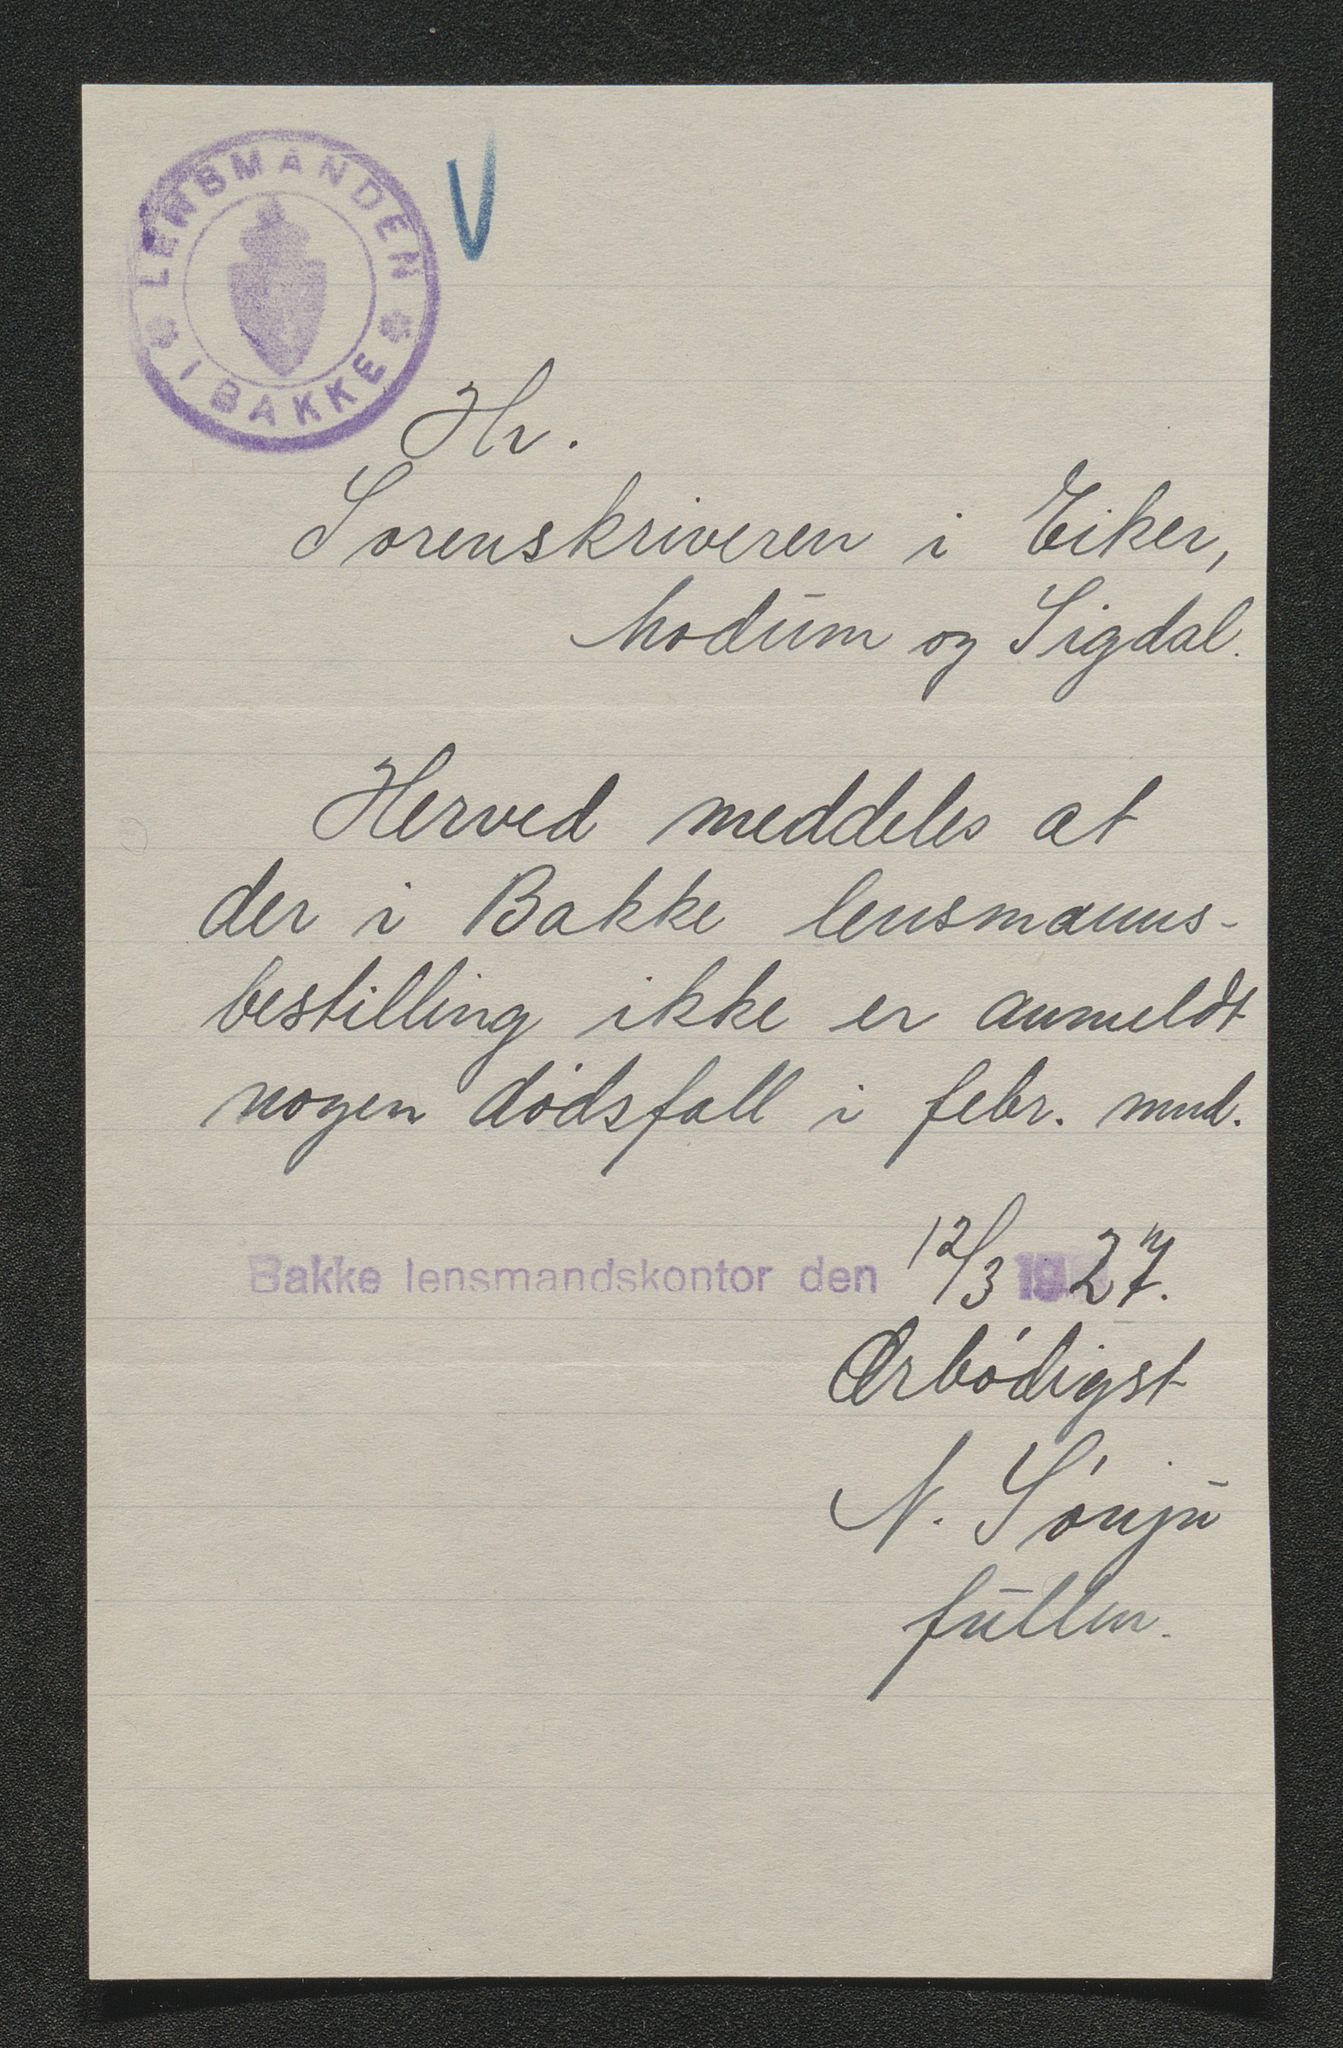 LENSMANDEN
I BAKKE
V
Hr.
Sorenskriveren i Eiker,
Modum og Sigdal.
Herved meddeles at
der i Bakke lensmanns-
bestilling ikke er anmeldt
nogen dødsfall i febr. mnd.
Bakke lensmandskontor den 12/3 1927.
Ærbødigst
N. Sønju
fullm.